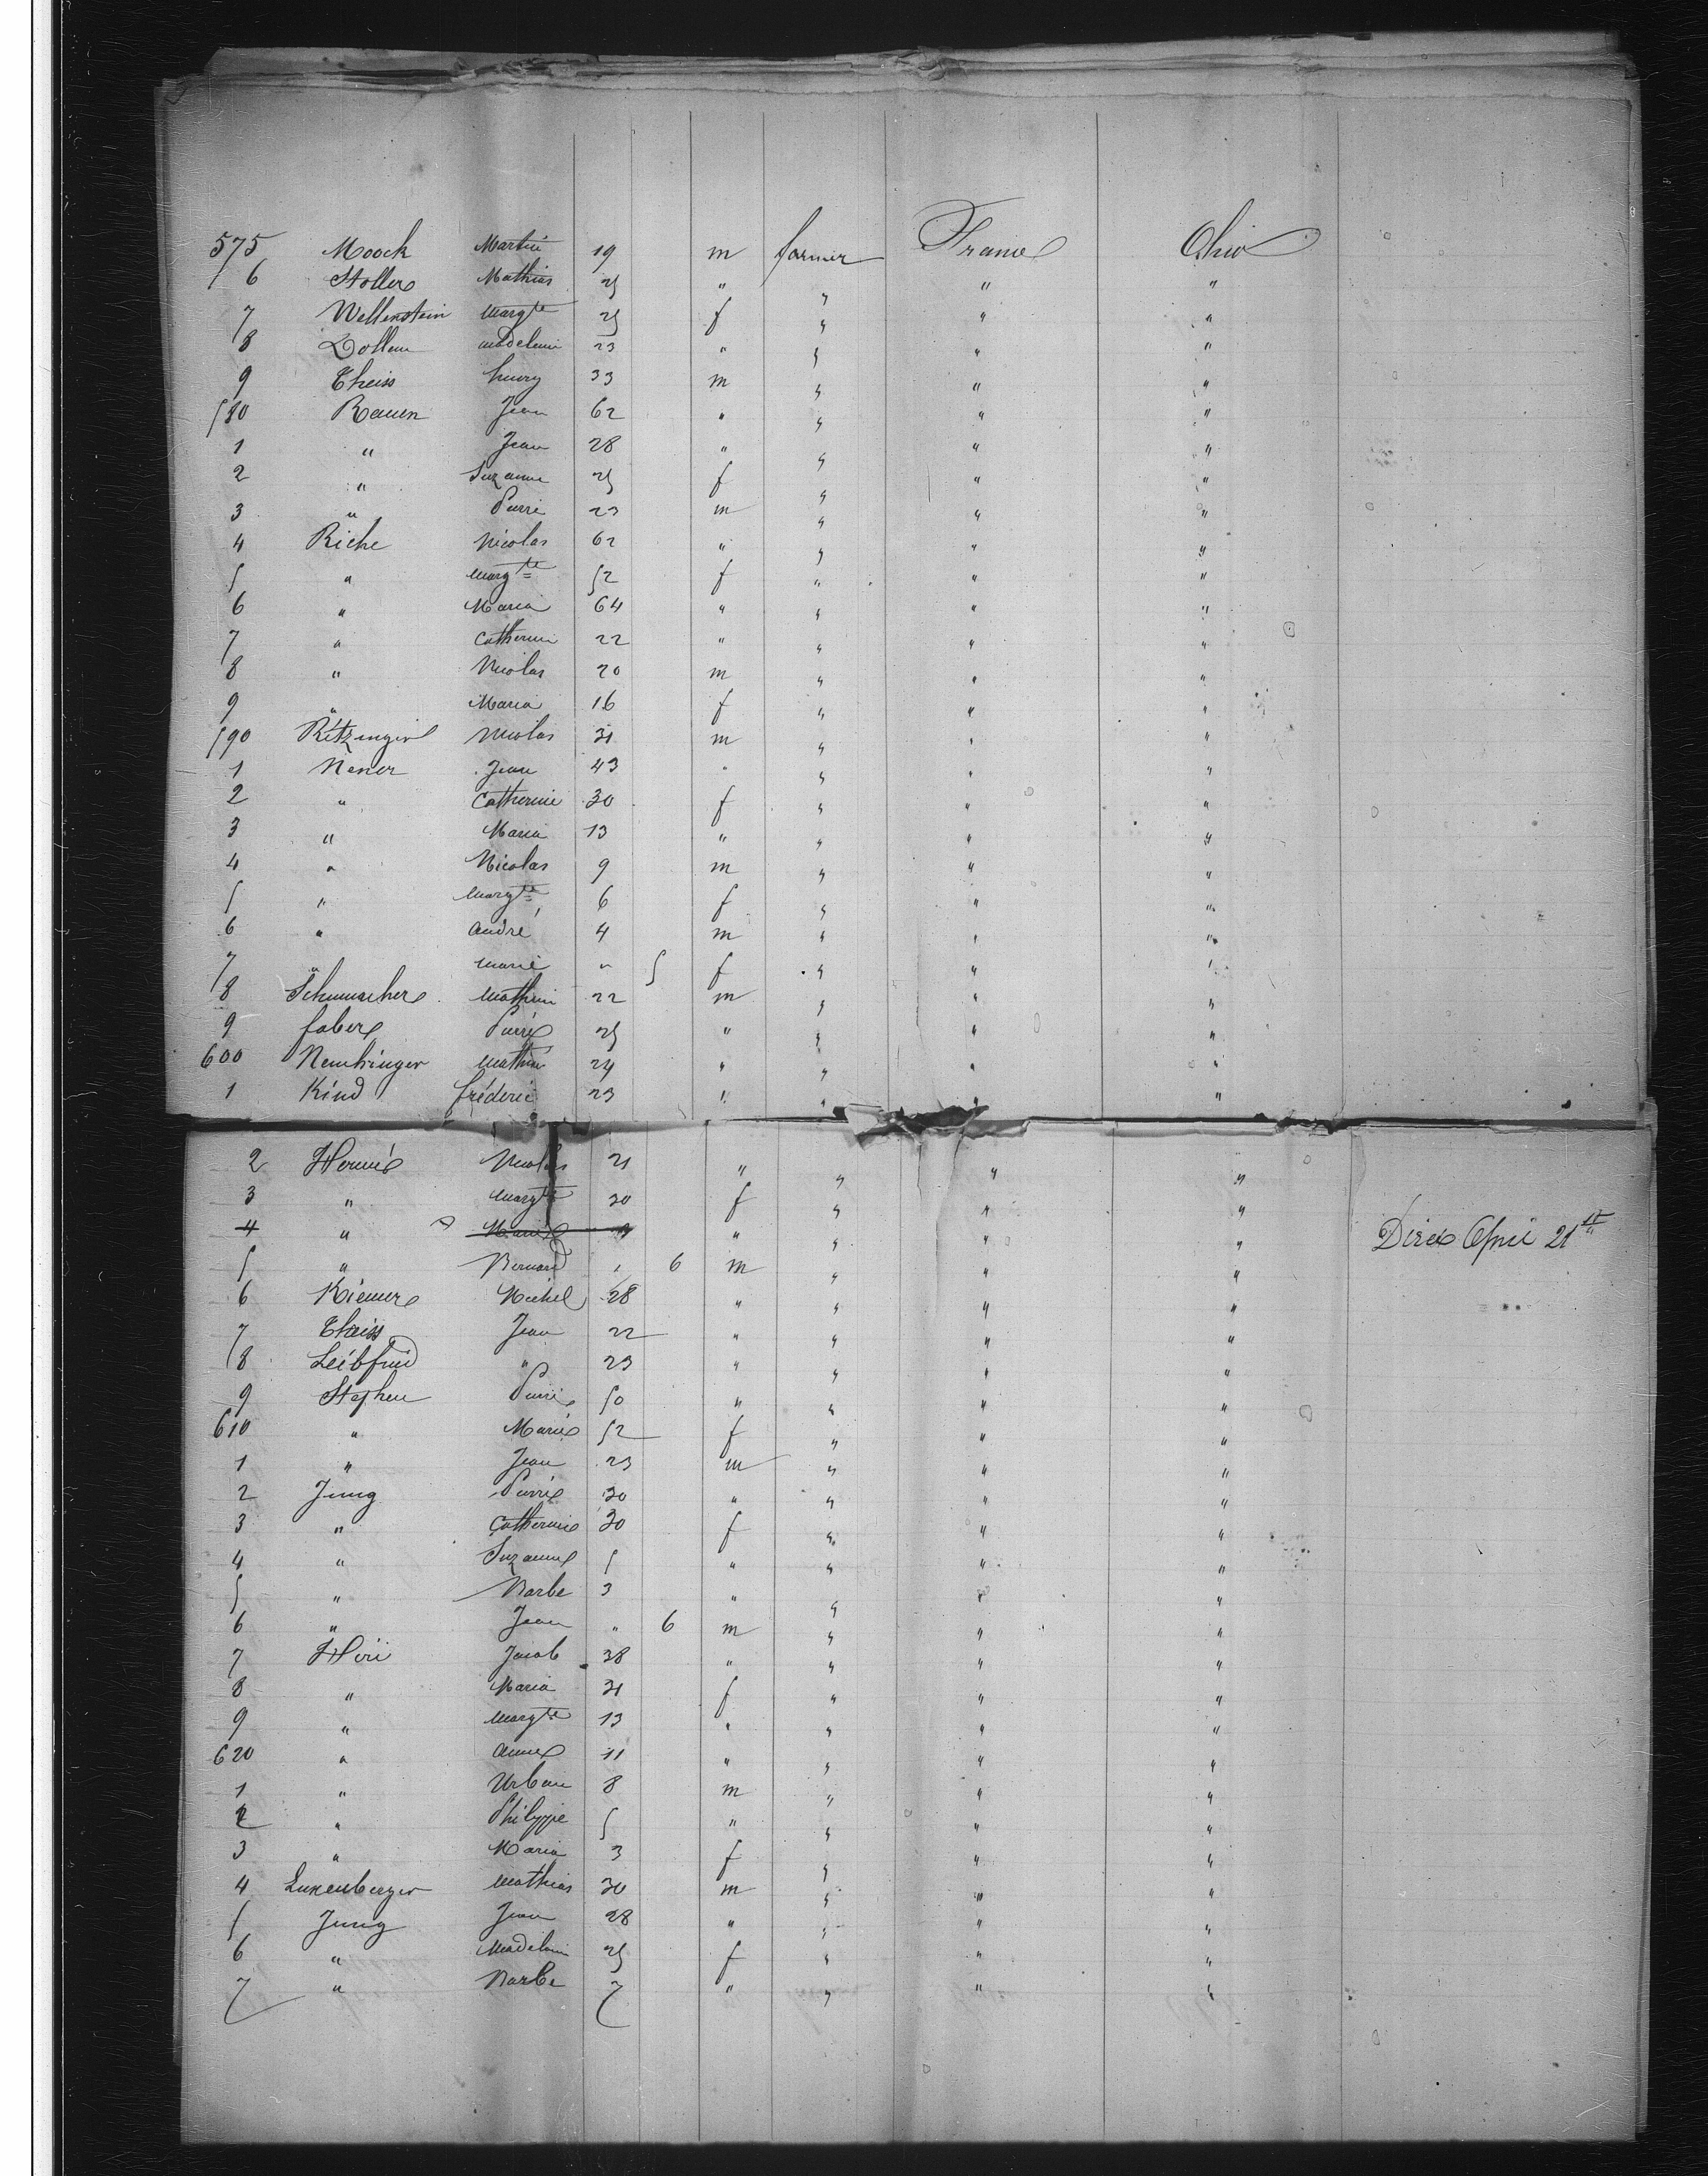 575 Moock Martin 19 m farmer France Ohio
6 Stoller Mathias 25 " " " "
7 Wellenstein Margte 25 f " " "
8 Dollen Madeleine 23 " " " "
9 Theiss henry 33 m " " "
580 Rauen Jean 62 " " " "
1 " Jean 28 " " " "
2 " Suzanne 25 f " " "
3 " Pierre 23 m " " "
4 Riche Nicolas 62 " " " "
5 " Margte 52 f " " "
6 " Maria 64 " " " "
7 " Catherine 22 " " " "
8 " Nicolas 20 m " " "
9 " Maria 16 f " " "
590 Ritzinger Nicolas 31 m " " "
1 Nener Jean 43 " " " "
2 " Catherine 30 f " " "
3 " Maria 13 " " " "
4 " Nicolas 9 m " " "
5 " Margte 6 f " " "
6 " André 4 m " " "
7 " Marie " 5 f " " "
8 Schumacher Mathieu 22 m " " "
9 faber Pierre 25 " " " "
600 Mathieu 24 " " " "
1 Kind fréderic 23 " " " "
2 Nicolas 21 " " " "
3 " Margte 30 f " " "
4 " Marie " " " " Died April 21st
5 " Bernard " 6 m " " "
6 Kiemer Michel 28 " " " "
7 Theiss Jean 22 " " " "
8 Leibfried " 23 " " " "
9 Stephen Pierre 50 " " " "
610 " Marie 52 f " " "
1 " Jean 23 m " " "
2 Jung Pierre 30 " " " "
3 " Catherine 30 f " " "
4 " Suzanne 5 " " " "
5 " Barbe 3 " " " "
6 " Jean " 6 m " " "
7 Jacob 38 " " " "
8 " Maria 31 f " " "
9 " Margte 13 " " " "
620 " Anne 11 " " " "
1 " Urban 8 m " " "
2 " Philippe 5 " " " "
3 " Maria 3 f " " "
4 Luxenberger Mathias 30 m " " "
5 Jung Jean 28 " " " "
6 " Madeleine 25 f " " "
7 " Barbe 7 " " " "